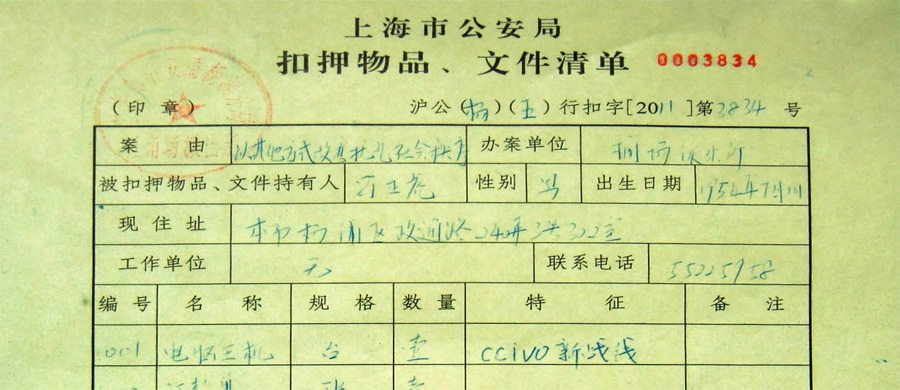 上海市公安局
扣押物品、文件清单 0003834
（印 章） 沪公（杨）（五）行扣字[2011]第3834号
案 由 以其他方式故意扰乱社会秩序 办案单位
被扣押物品、文件持有人 性别 男 出生日期
现 住 址 本市杨浦区政通路240弄3号302室
工作单位 无 联系电话 55225958
编 号 名 称 规 格 数 量 特 征 备 注
001 电脑主机 台 壹 CCIVO新战线